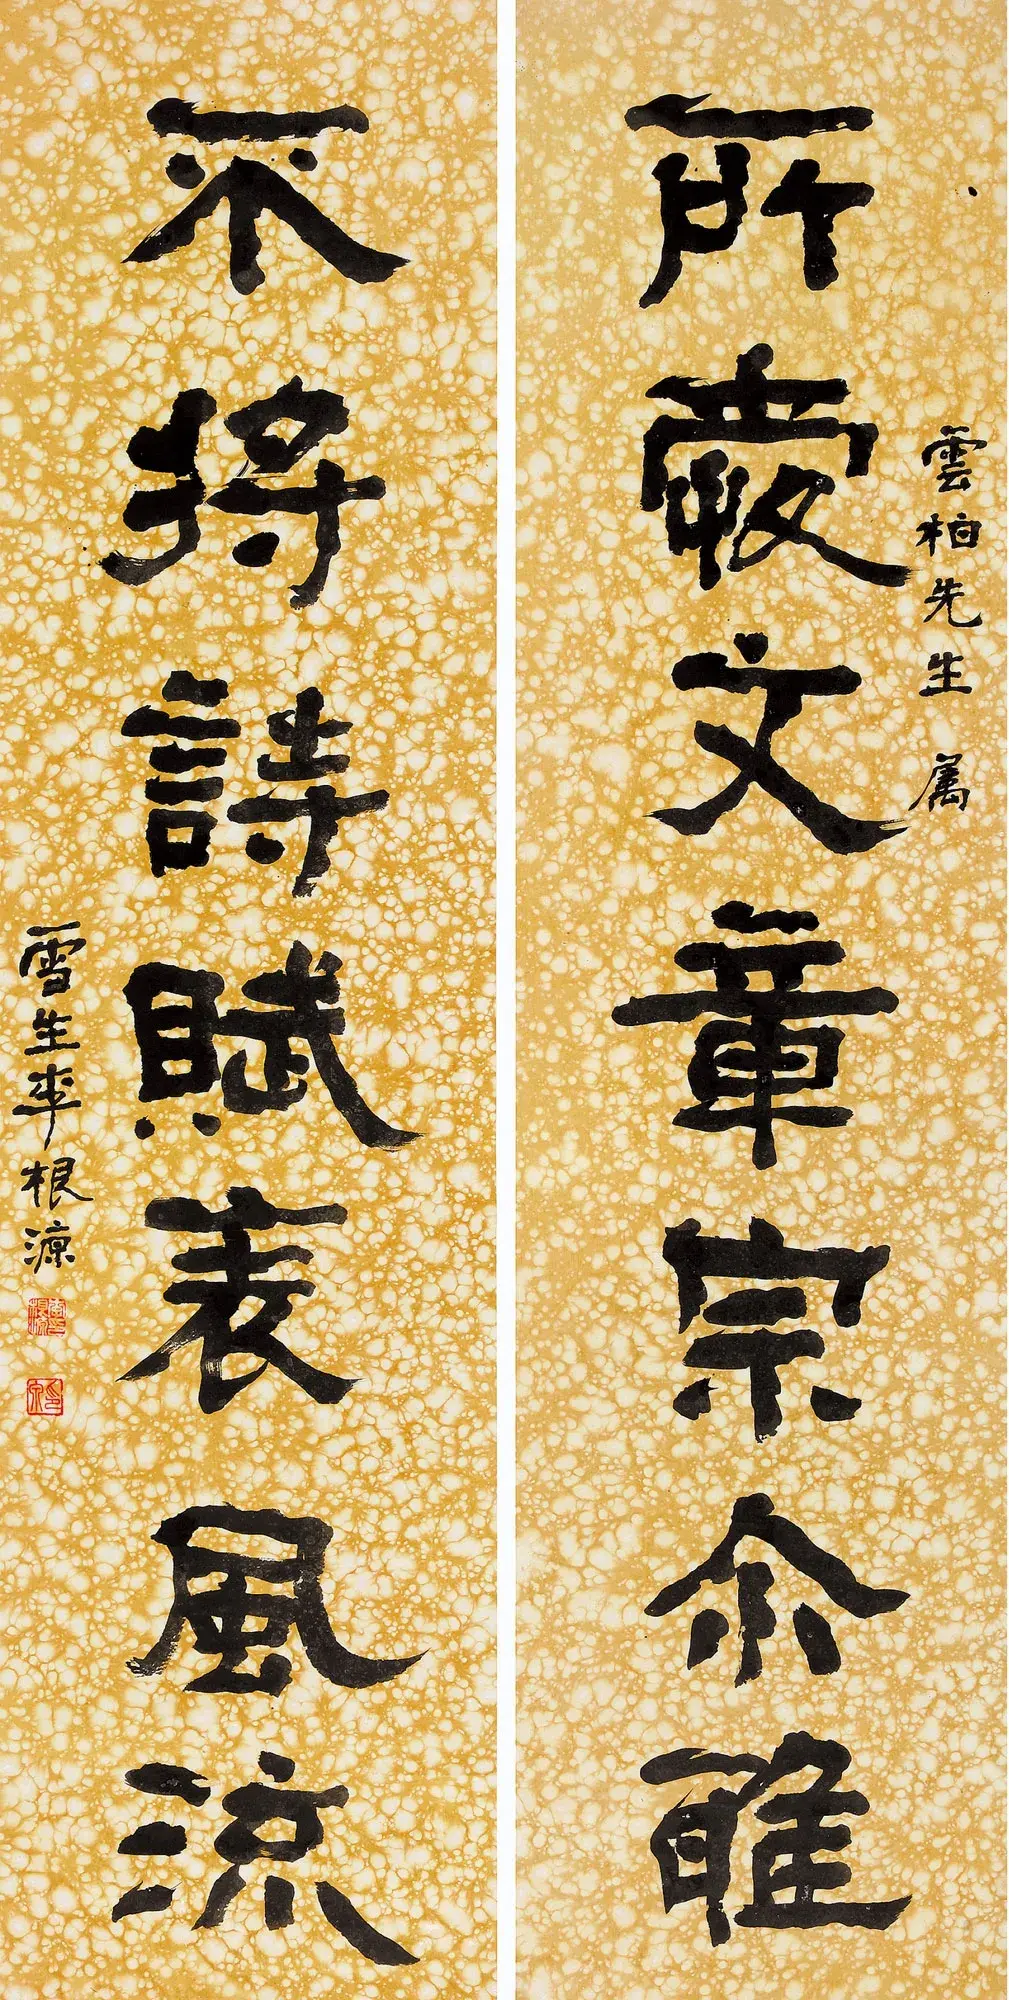 雲柏先生屬
所文章宗尒雅
不將詩賦表風流
雪生李根源